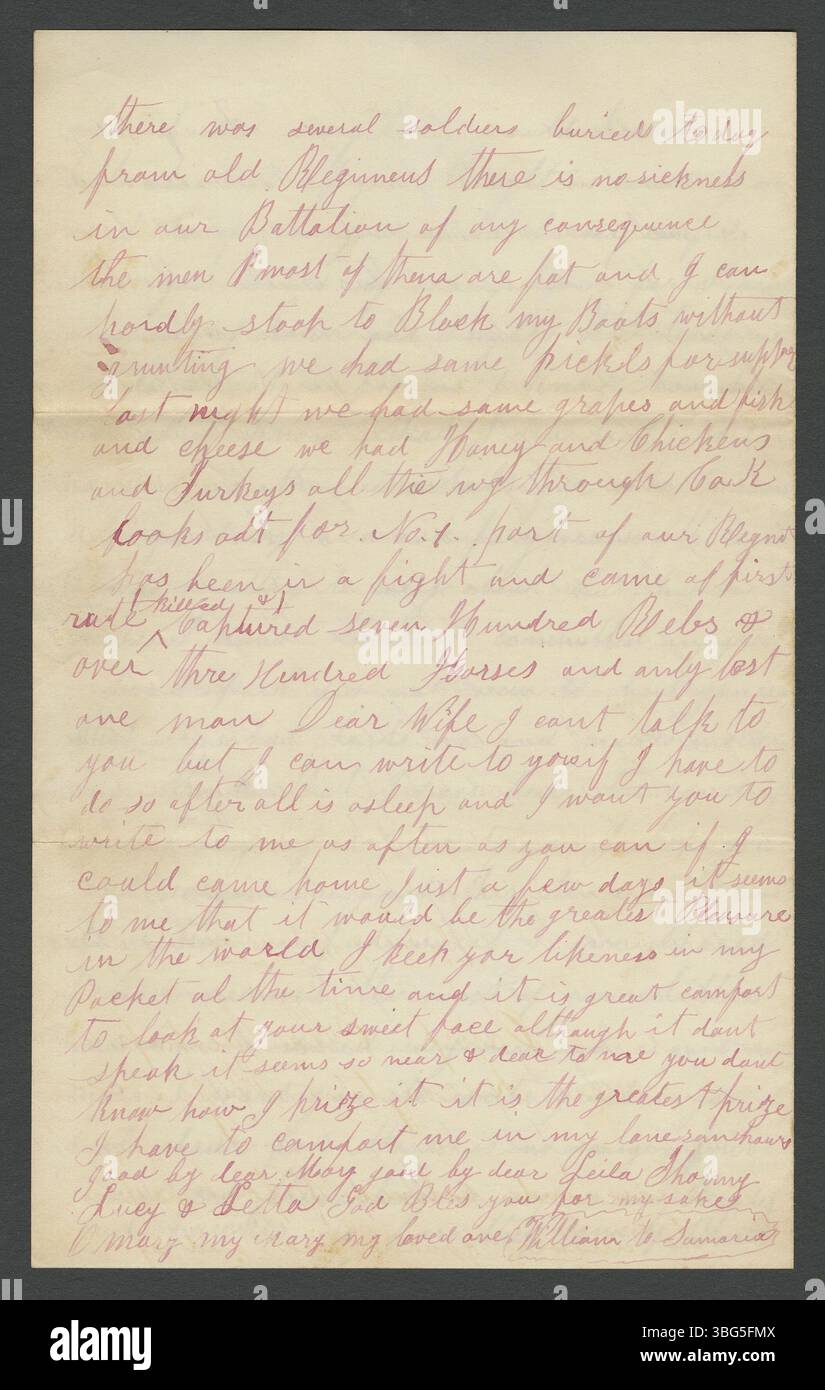 there was several soldiers buried to day
from old Regiments there is no sickness
in our Battalion of any consequence
the men most of them are fat and I can
hardly stoop to Black my Boots without
grunting we had some pickels for supper
last night we had some grapes and fish
and cheese we had Honey and Chickens
and Turkeys all the way through Co. K
looks out for No. 1. part of our Regmt
has been in a fight and came of first
rate killed & Captured seven Hundred Rebs &
over thre Hundred Horses and only lost
one man Dear Wife I cant talk to
you but I can write to you if I have to
do so after all is asleep and I want you to
write to me as often as you can if I
could come home Just a few days it seems
to me that it would be the greates Pleasure
in the world I keep yor likeness in my
Pocket al the time and it is great comfort
to look at your sweet face although it dont
speak it seems so near & dear to me you dont
know how I prize it it is the greatest prize
I have to comfort me in my lonesom hours
good by dear Mary good by dear Leila Thommy
Lucy & Letta God Bles you for my sake
O Mary my Mary my loved one William to Samaria
alamy
Image ID: 3BG5FMX
www.alamy.com